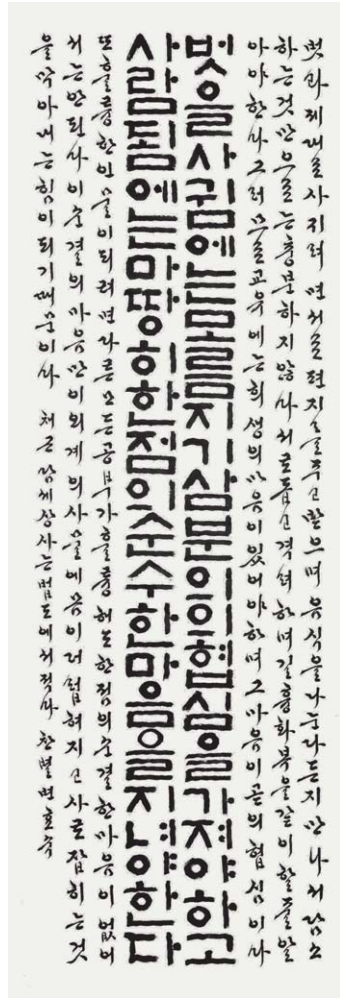 벗과 제대로 사귀려면 서로 편지를 주고 받으며 음식을 나눈다든지 만나서 담소
하는 것만으로는 충분하지 않다 서로 돕고 격려하며 길흉화복을 같이 할 줄 알
아야 한다 그러므로 교우에는 희생의 마음이 있어야 하며 그 마음이 곧 의협심이다
벗을 사귐에는 모름지기 삼분의 의협심을 가져야 하고
사람됨에는 마땅히 한 점의 순수한 마음을 지녀야 한다
또 훌륭한 인물이 되려면 다른 모든 공부가 훌륭해도 한 점의 순결한 마음이 없어
서는 안된다 이 순결의 마음만이 외계의 사물에 몸이 더럽혀지고 사로잡히는 것
을 막아내는 힘이 되기 때문이다 채근담 세상 사는 법도에서 적다 찬별 변효숙